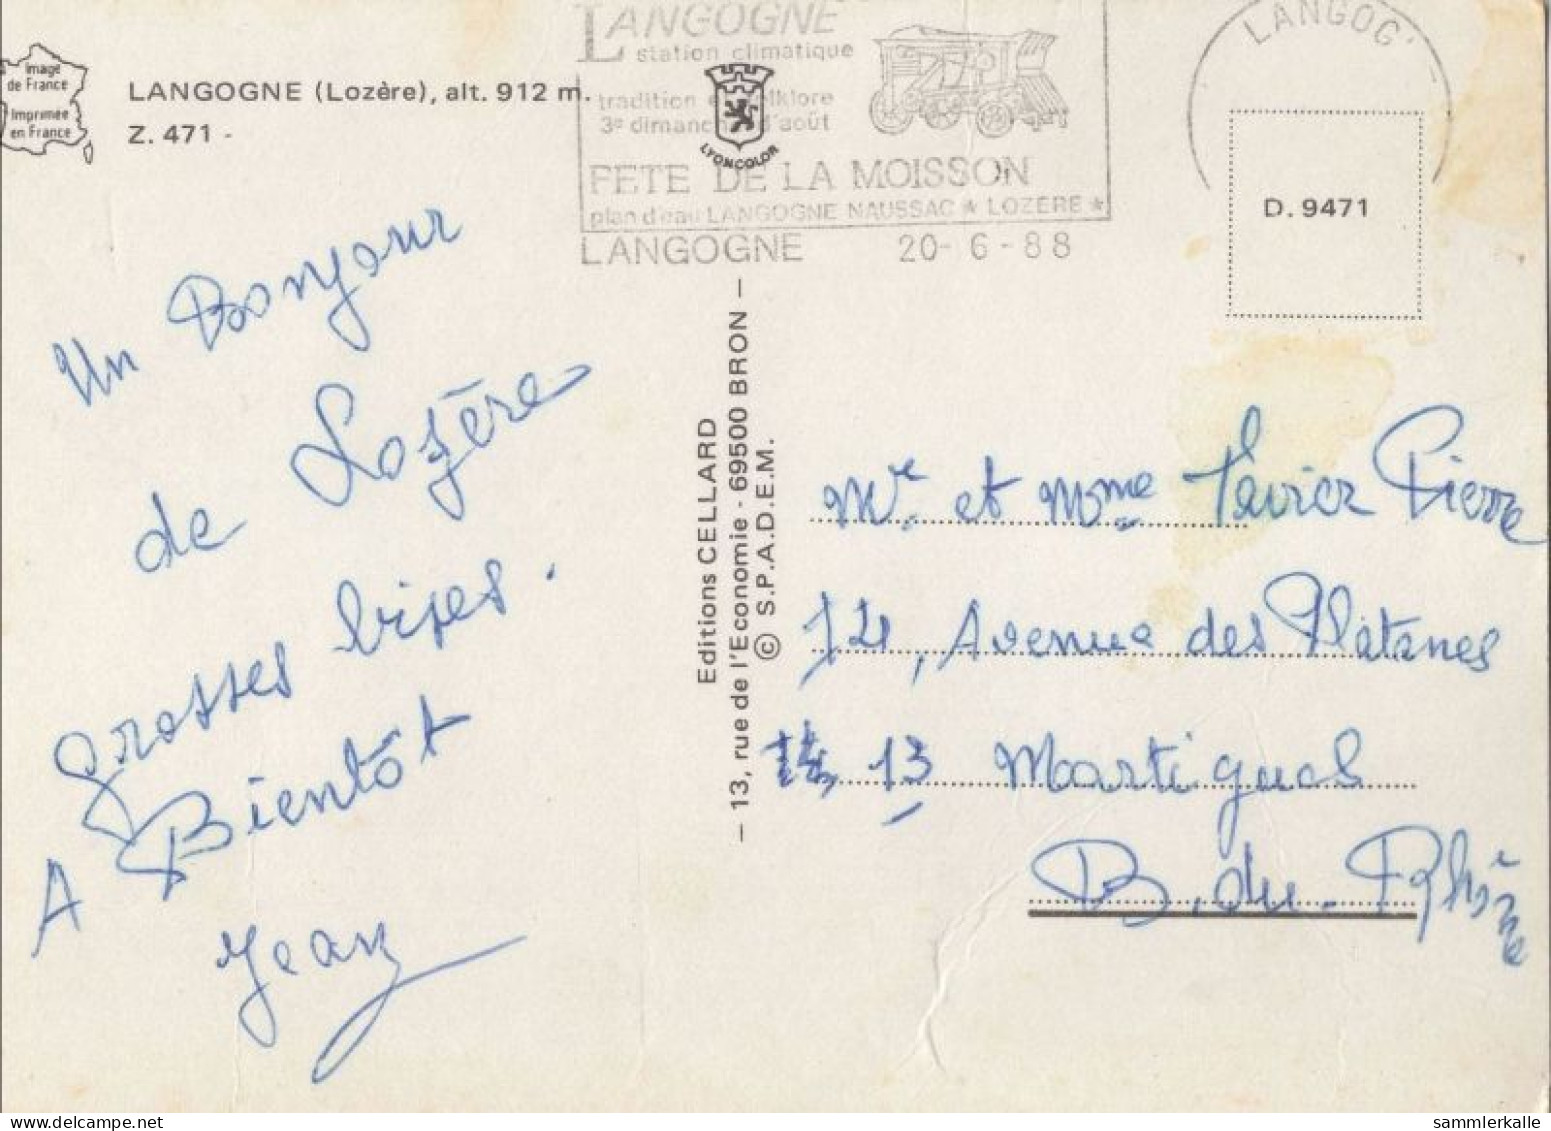 LANGOGNE
station climatique
tradition et folklore
3e dimanche d'août
FETE DE LA MOISSON
plan d'eau LANGOGNE NAUSSAC * LOZERE *
LANGOGNE 20-6-88
LANGOG
Image
de France
Imprimée
en France
LANGOGNE (Lozère), alt. 912 m.
Z. 471 -
LYONCOLOR
D. 9471
Un Bonjour
de Lozère
grosses bises.
A Bientôt
Jean
Editions CELLARD
— 13, rue de l'Economie - 69500 BRON —
© S.P.A.D.E.M.
Mr et Mme Pierre
14, Avenue des Platanes
13 Martigues
B. du. Rhône
sammlerkalle